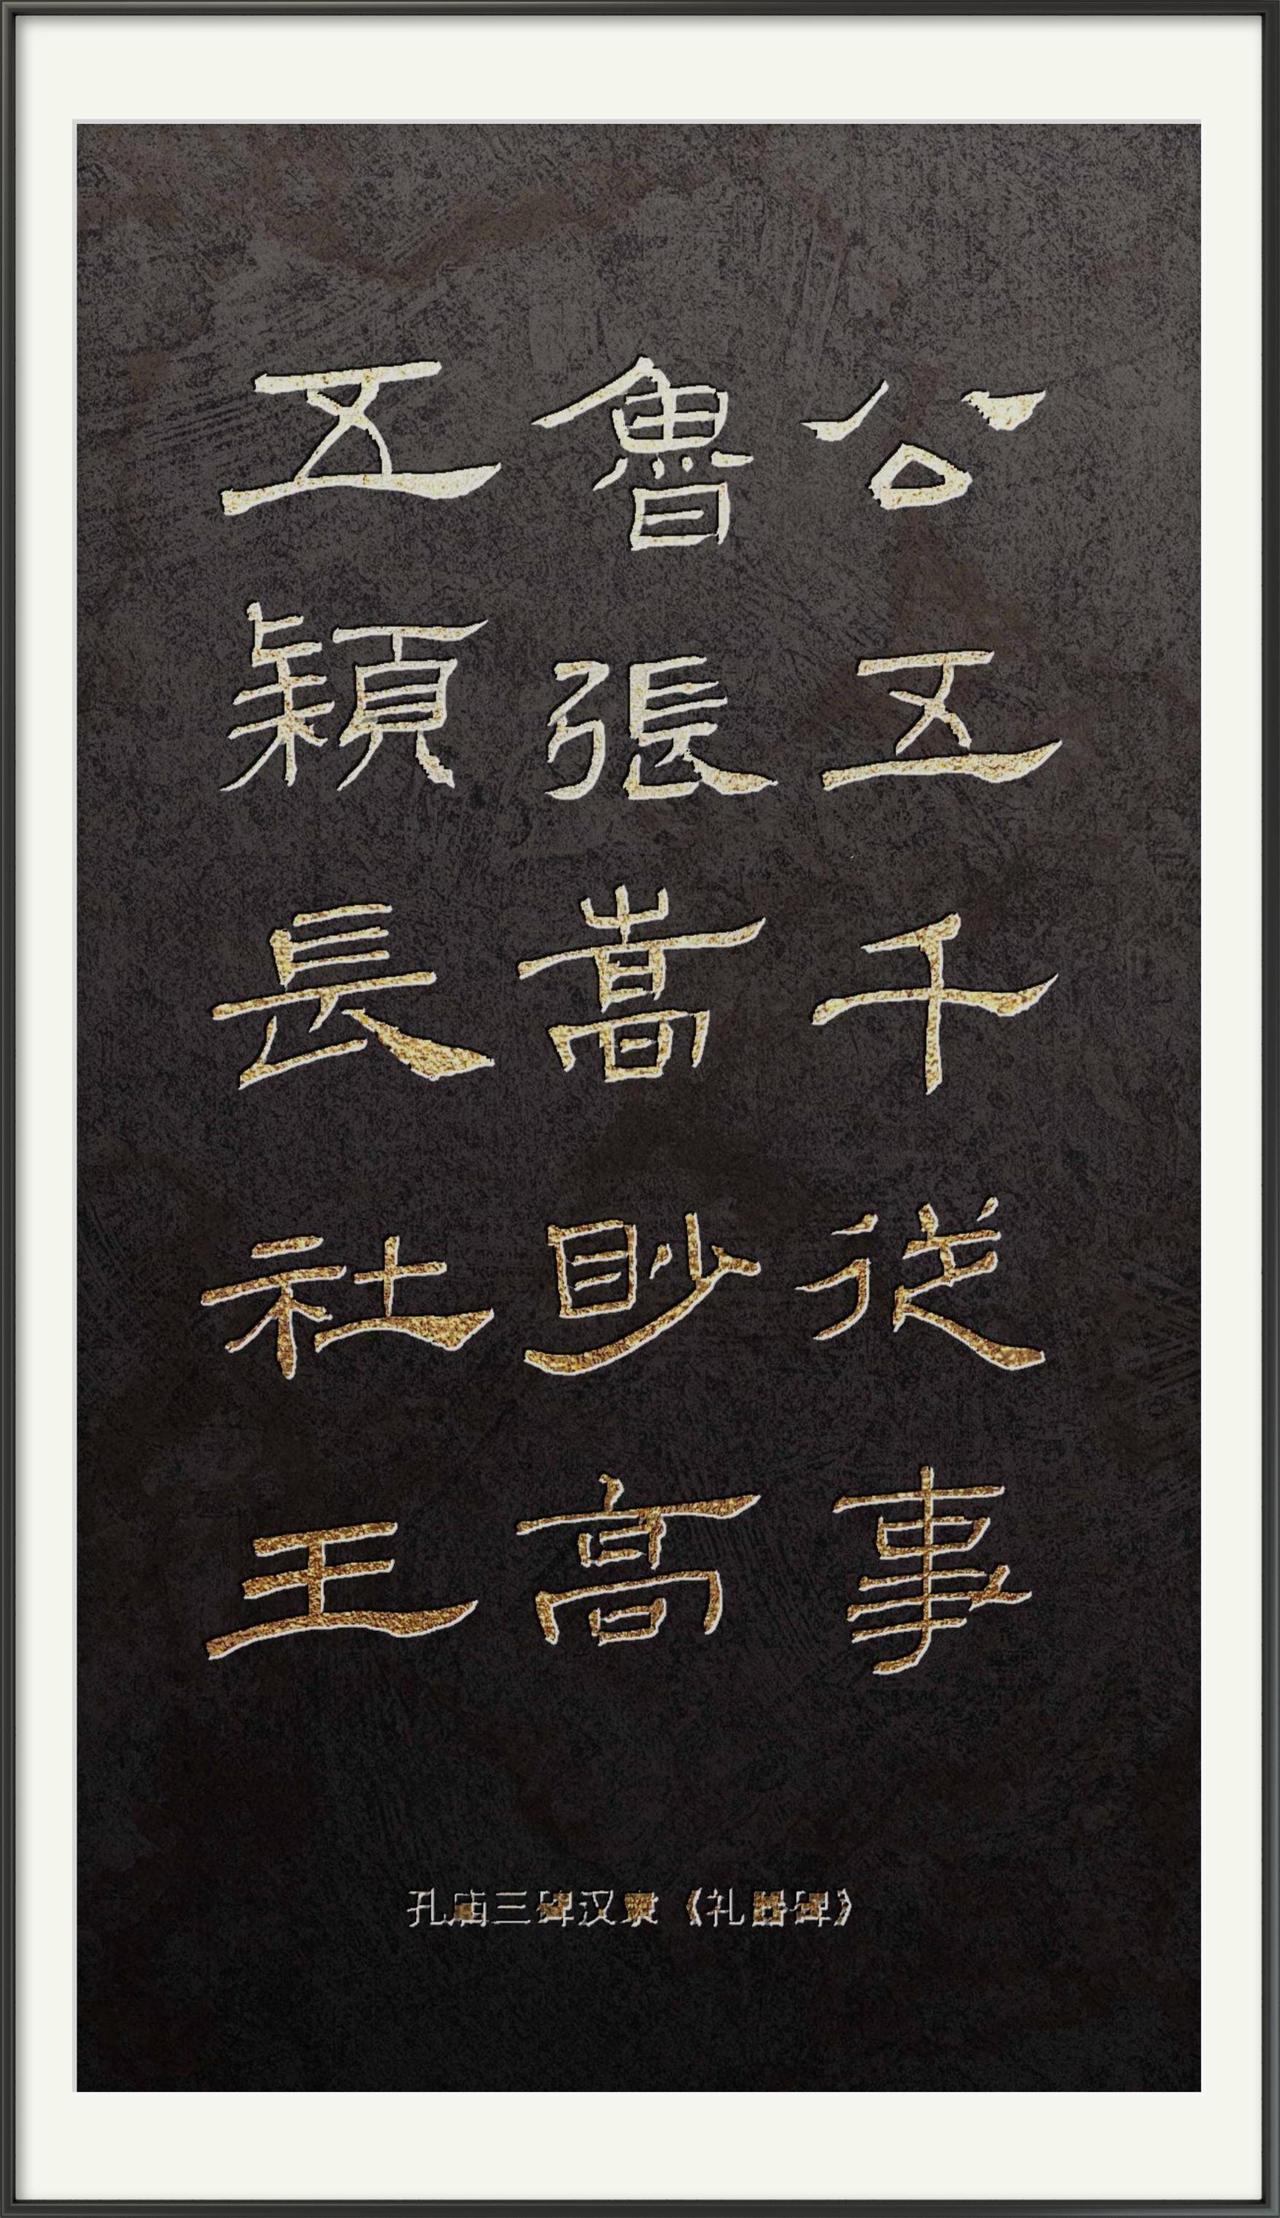 公五千從事
魯張嵩眇高
五穎長社王
孔庙三碑汉隶《礼器碑》